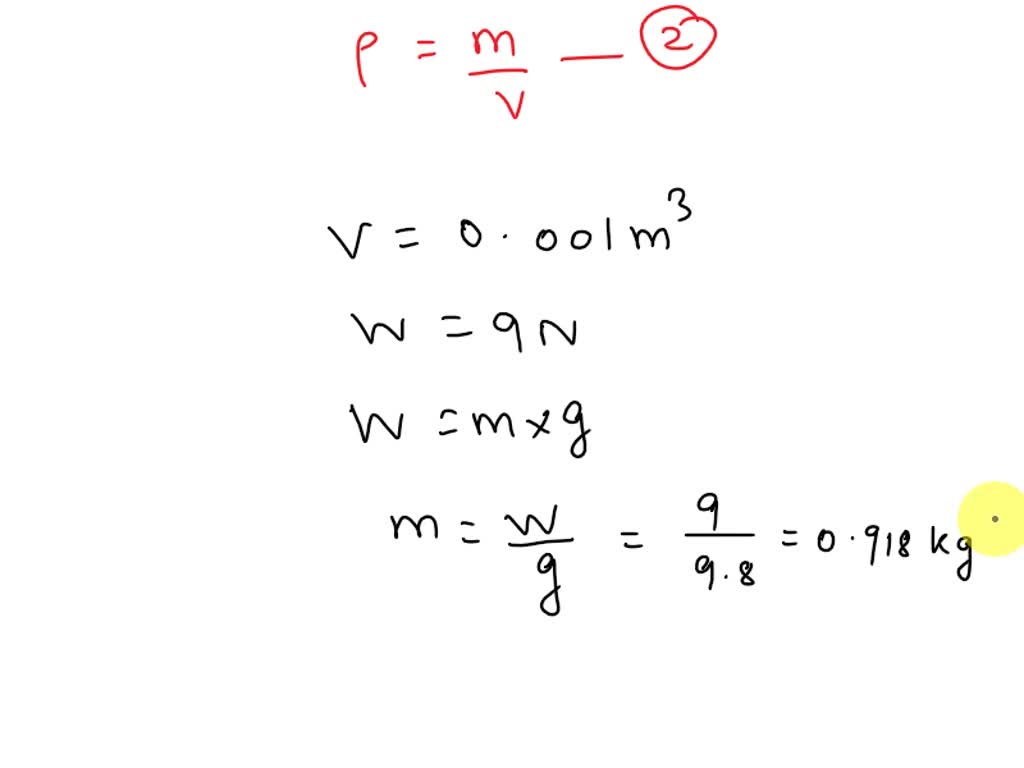 ρ = m/V — ②
V = 0.001 m³
W = 9N
W = m × g
m = W/g = 9/9.8 = 0.918 kg